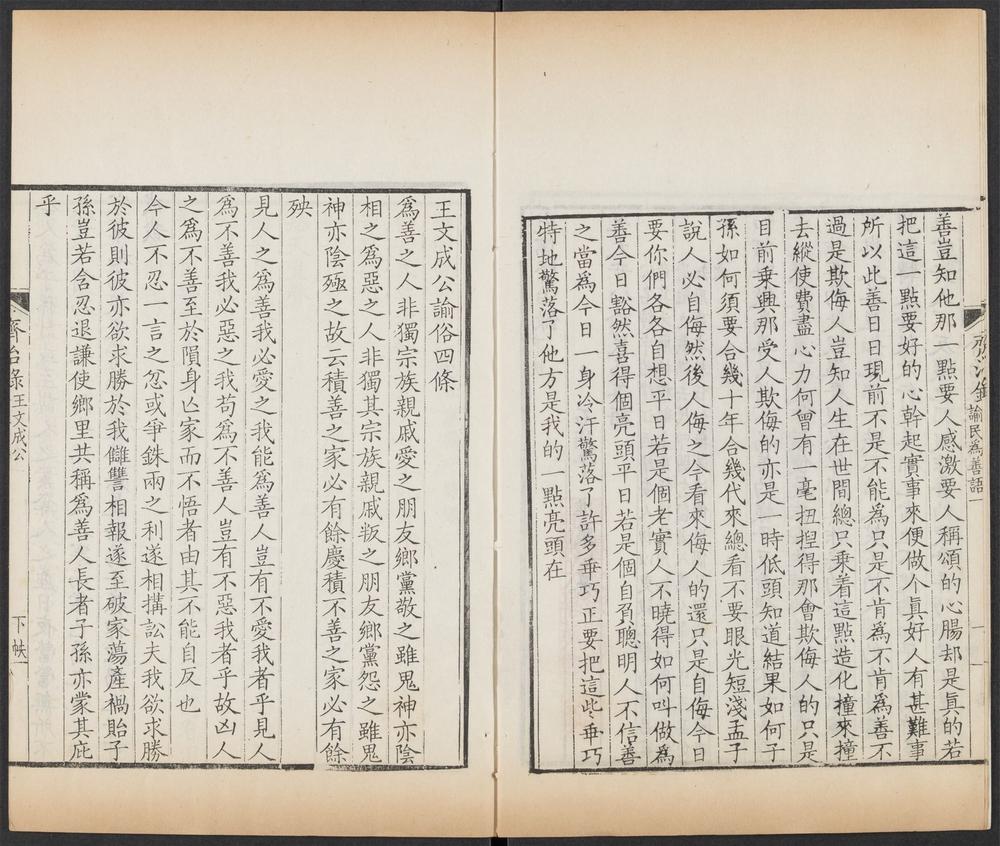 齊治錄 諭民為善語
善豈知他那一點要人感激要人稱頌的心腸却是真的若
把這一點要好的心幹起實事來便做个真好人有甚難事
所以此善日日現前不是不能為只是不肯為不肯為善不
過是欺侮人豈知人生在世間總只乘着這點造化撞來撞
去縱使費盡心力何曾有一毫扭揑得那會欺侮人的只是
目前乗興那受人欺侮的亦是一時低頭知道結果如何子
孫如何須要合幾十年合幾代來總看不要眼光短淺孟子
說人必自侮然後人侮之今看來侮人的還只是自侮今日
要你們各各自想平日若是個老實人不曉得如何叫做為
善今日豁然喜得個亮頭平日若是個自負聰明人不信善
之當為今日一身冷汗驚落了許多乖巧正要把這些乖巧
特地驚落了他方是我的一點亮頭在
王文成公諭俗四條
爲善之人非獨宗族親戚愛之朋友鄉黨敬之雖鬼神亦陰
相之爲惡之人非獨其宗族親戚叛之朋友鄉黨怨之雖鬼
神亦陰殛之故云積善之家必有餘慶積不善之家必有餘
殃
見人之爲善我必愛之我能爲善人豈有不愛我者乎見人
爲不善我必惡之我苟爲不善人豈有不惡我者乎故凶人
之爲不善至於隕身亾家而不悟者由其不能自反也
今人不忍一言之忿或爭銖兩之利遂相搆訟夫我欲求勝
於彼則彼亦欲求勝於我讎讐相報遂至破家蕩產禍貽子
孫豈若含忍退謙使鄉里共稱爲善人長者子孫亦蒙其庇
乎
齊治錄 王文成公
下帙